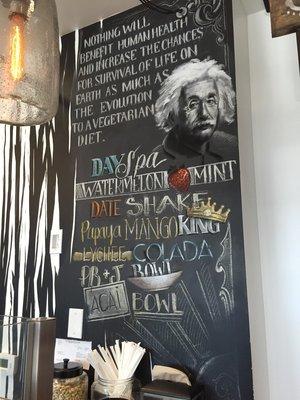 NOTHING WILL
BENEFIT HUMAN HEALTH
AND INCREASE THE CHANCES
FOR SURVIVAL OF LIFE ON
EARTH AS MUCH AS
THE EVOLUTION
TO A VEGETARIAN
DIET.
DAY Spa
WATERMELON MINT
DATE SHAKE
Papaya MANGO KING
LYCHEE COLADA
PB + J BOWL
ACAI BOWL